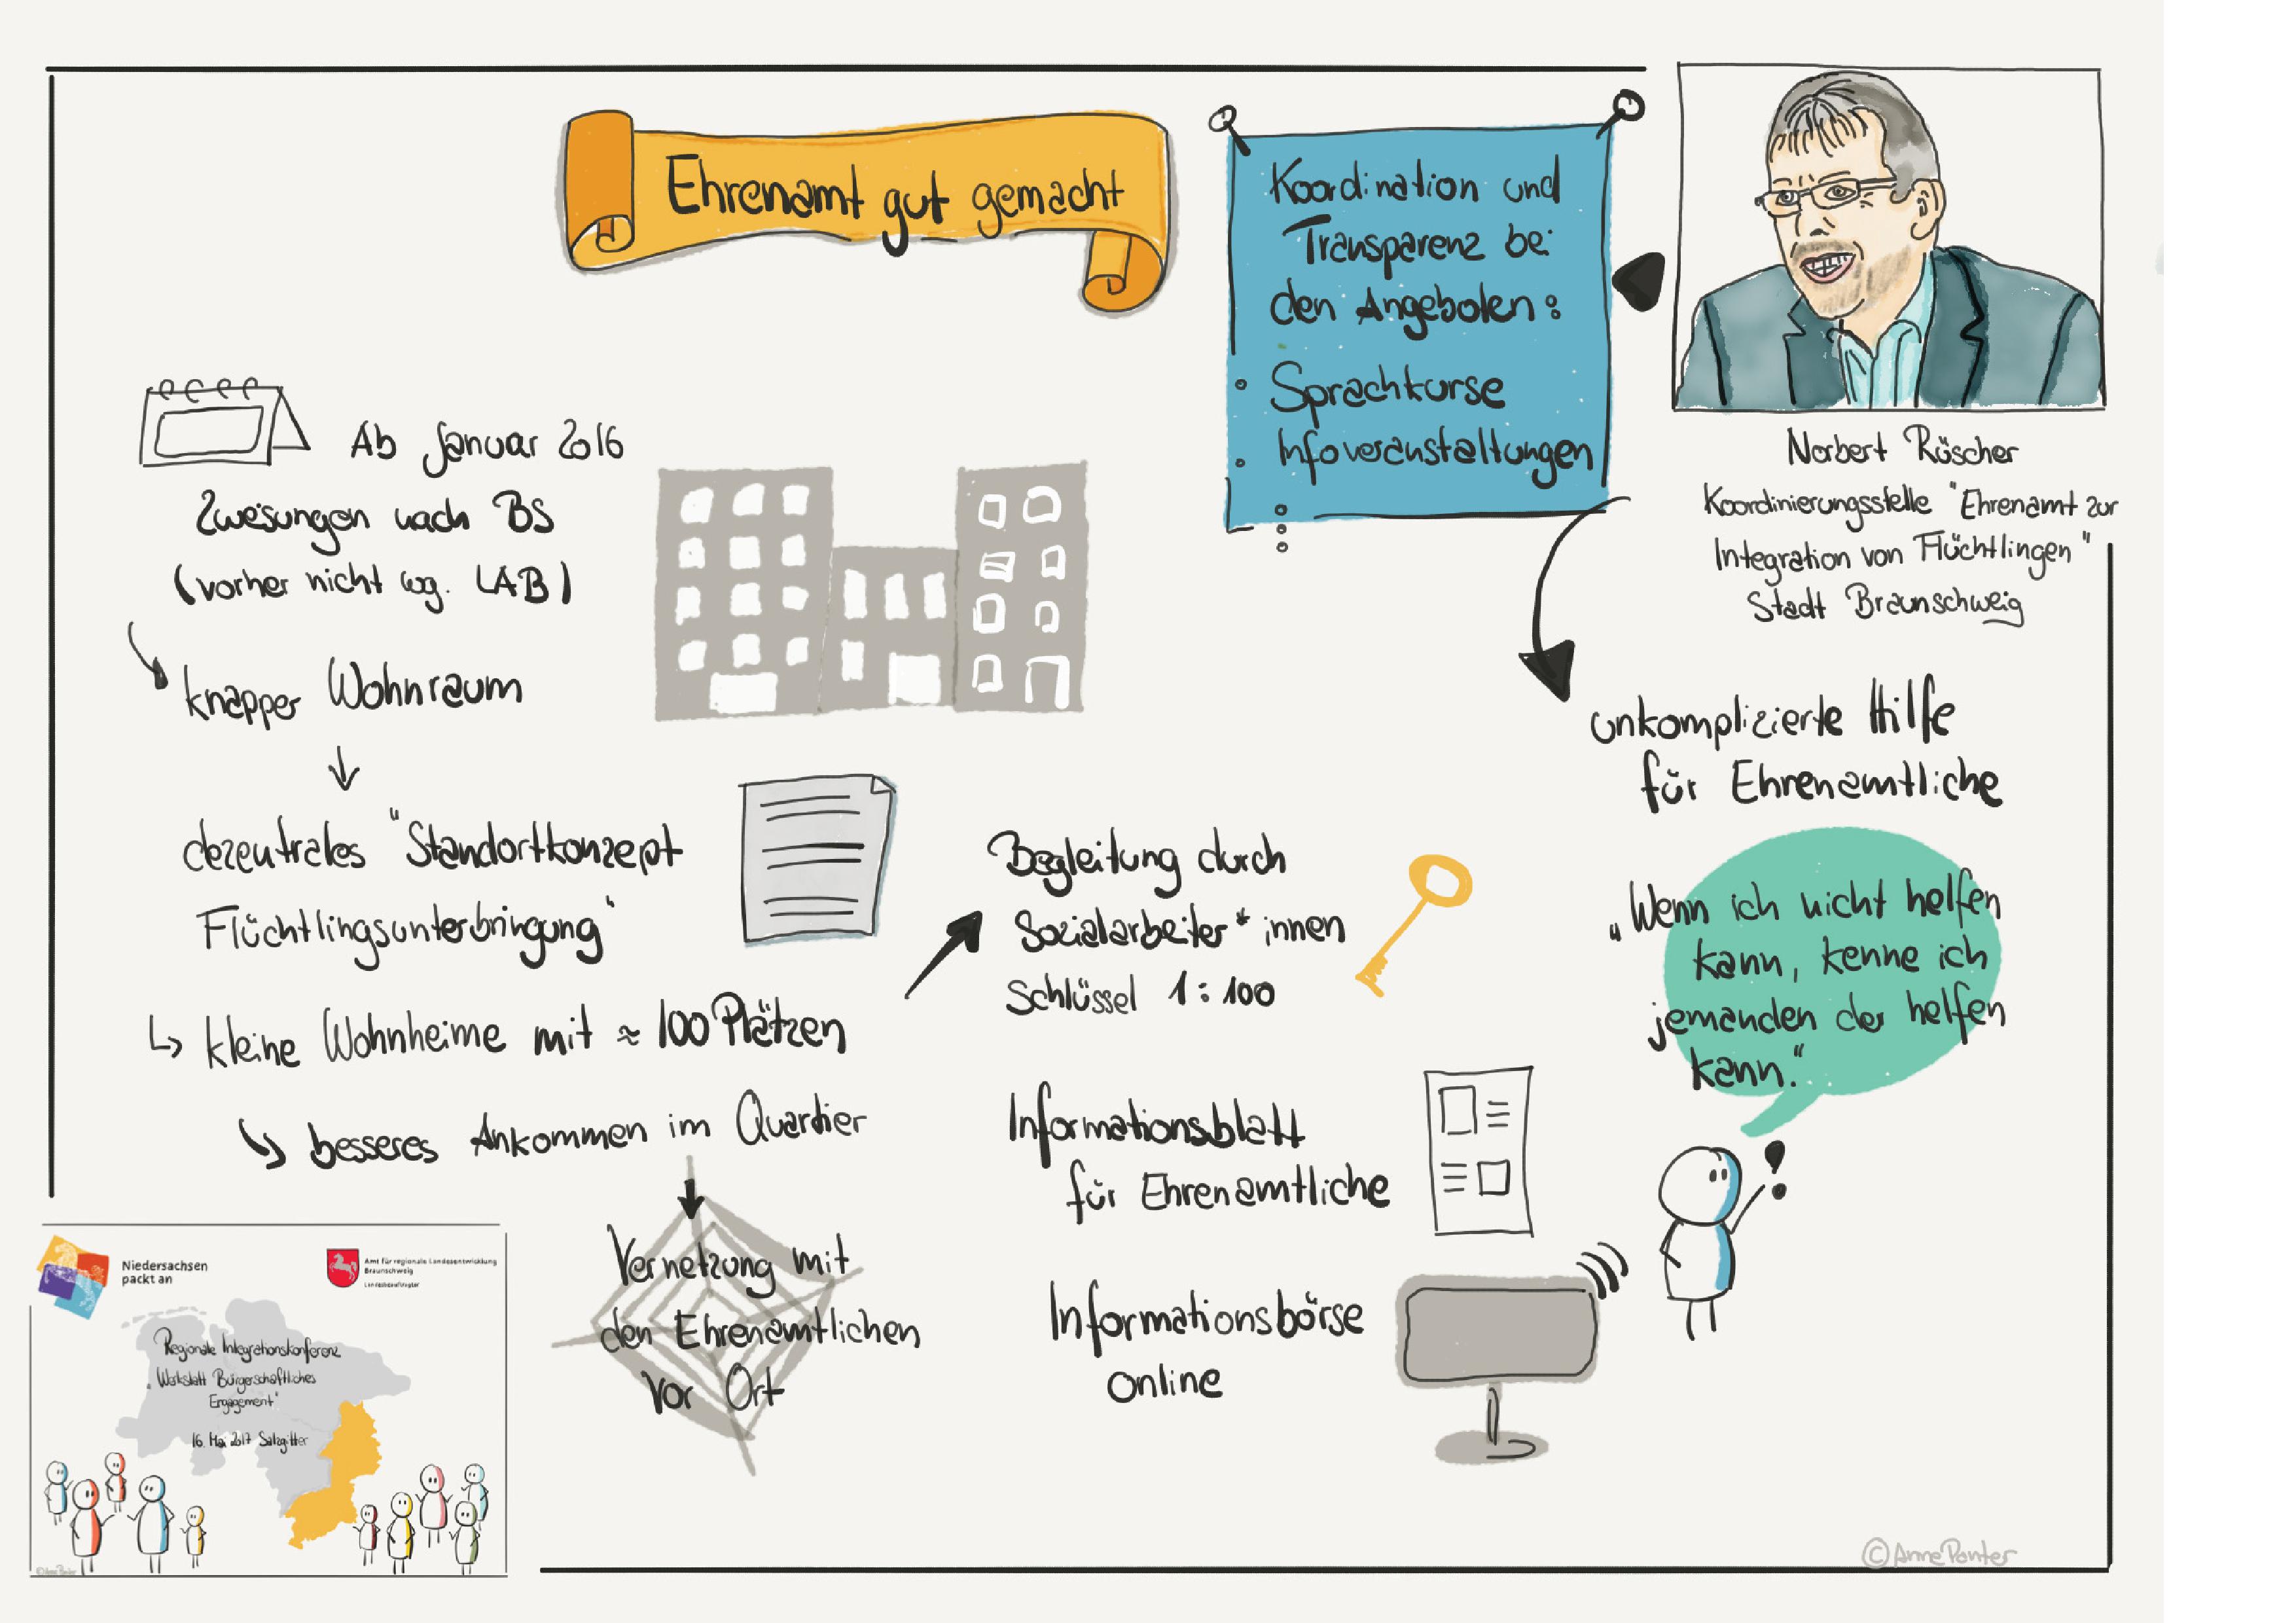 Ehrenamt gut gemacht
Koordination und
Transparenz bei
den Angeboten:
• Sprachkurse
• Infoveranstaltungen
Norbert Rüscher
Koordinierungsstelle "Ehrenamt zur
Integration von Flüchtlingen"
Stadt Braunschweig
Ab Januar 2016
Zuweisungen nach BS
(vorher nicht wg. LAB)
knapper Wohnraum
dezentrales "Standortkonzept
Flüchtlingsunterbringung"
kleine Wohnheime mit ≈ 100 Plätzen
besseres Ankommen im Quartier
Vernetzung mit
den Ehrenamtlichen
vor Ort
Begleitung durch
Sozialarbeiter*innen
Schlüssel 1:100
Informationsblatt
für Ehrenamtliche
Informationsbörse
online
unkomplizierte Hilfe
für Ehrenamtliche
„Wenn ich nicht helfen
kann, kenne ich
jemanden der helfen
kann."
Niedersachsen
packt an
Amt für regionale Landesentwicklung
Braunschweig
Landesbeauftragter
Regionale Integrationskonferenz
„Werkstatt Bürgerschaftliches
Engagement"
16. Mai 2017 Salzgitter